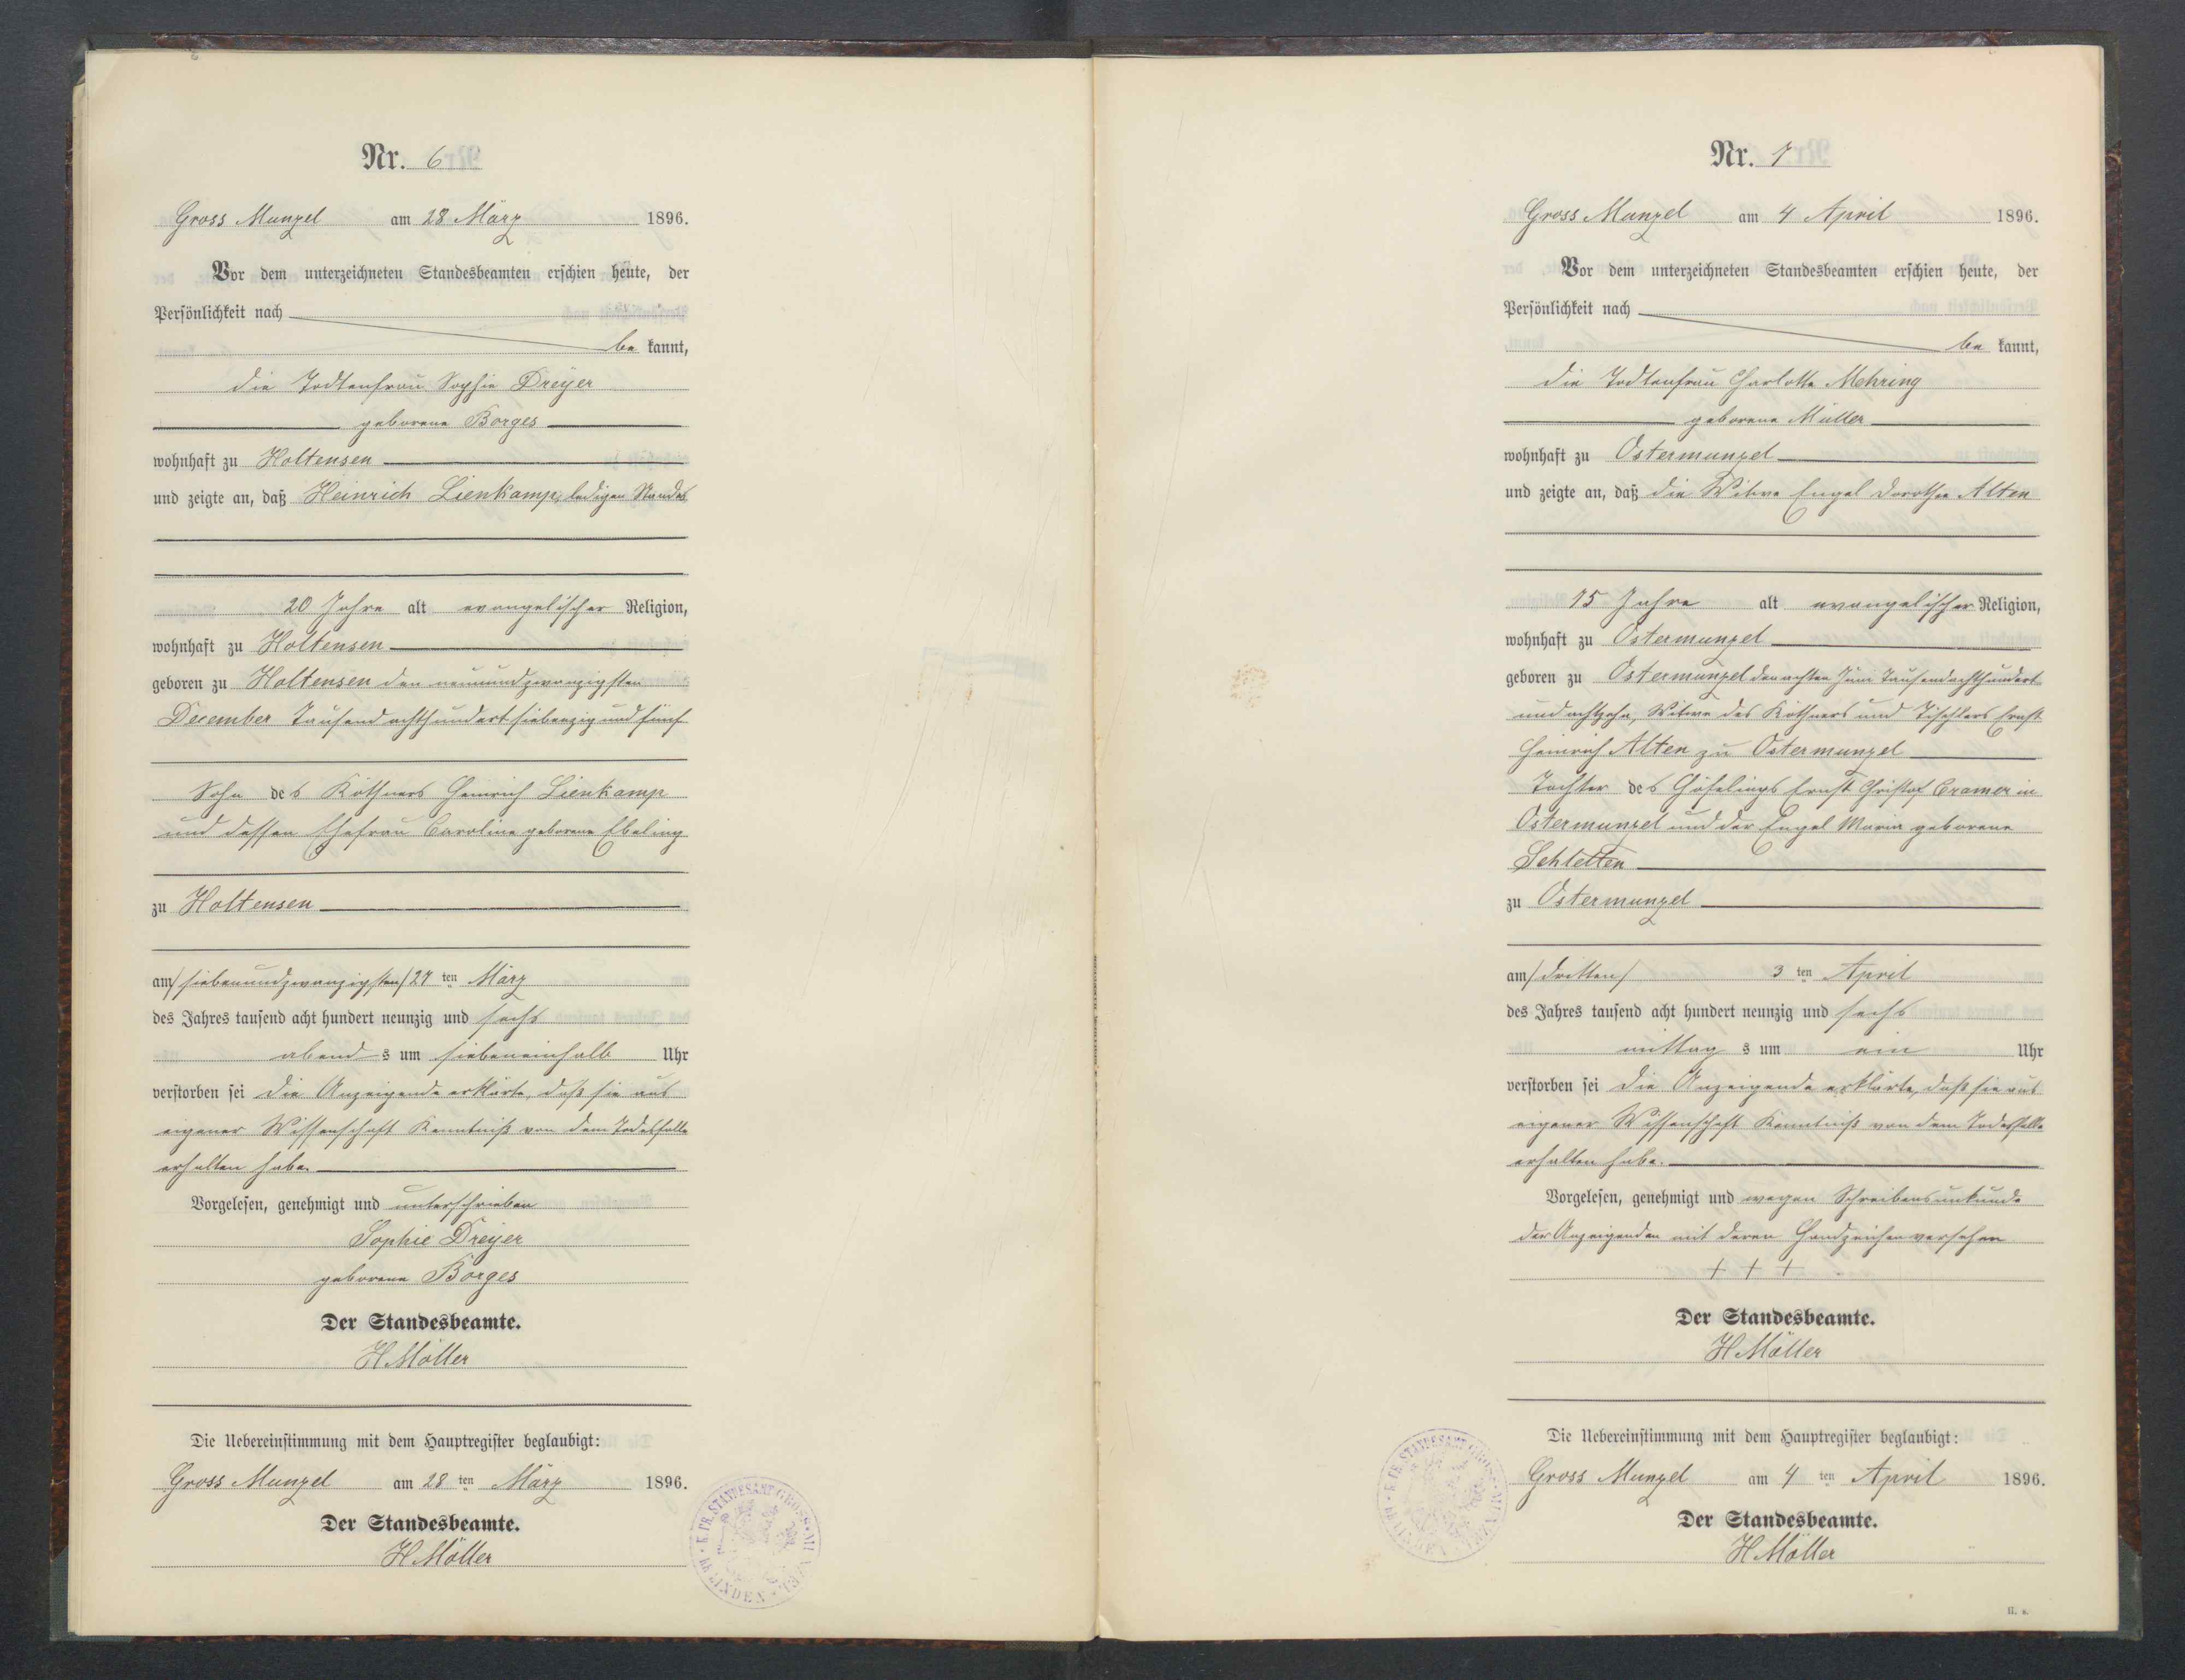 Nr. 6
Gross Munzel am 28 März 1896.
Vor dem unterzeichneten Standesbeamten erschien heute, der
Persönlichkeit nach
be kannt,
die Todtenfrau Sophie Dreyer
geborene Borges
wohnhaft zu Holtensen
und zeigte an, daß Heinrich Lienkamp, ledigen Standes
20 Jahre alt evangelischer Religion,
wohnhaft zu Holtensen
geboren zu Holtensen den neunundzwanzigsten
December Tausend achthundert siebenzig und fünf
Sohn des Köthners Heinrich Lienkamp
und dessen Ehefrau Caroline geborene Ebeling
zu Holtensen
am /siebenundzwanzigsten/ 27 ten März
des Jahres tausend acht hundert neunzig und sechs
abend s um siebeneinhalb Uhr
verstorben sei die Anzeigende erklärte, daß sie aus
eigener Wissenschaft Kenntniß von dem Todesfalle
erhalten habe.
Vorgelesen, genehmigt und unterschrieben
Sophie Dreyer
geborene Borges
Der Standesbeamte.
H Möller
Die Uebereinstimmung mit dem Hauptregister beglaubigt:
Gross Munzel am 28 ten März 1896.
Der Standesbeamte.
H Möller
K. PR. STANDESAMT GROSS-MUNZEL
LINDEN
Nr. 7
Gross Munzel am 4 April 1896.
Vor dem unterzeichneten Standesbeamten erschien heute, der
Persönlichkeit nach
be kannt,
die Todtenfrau Charlotte Mehring
geborene Müller
wohnhaft zu Ostermunzel
und zeigte an, daß die Witwe Engel Dorothee Alten
75 Jahre alt evangelischer Religion,
wohnhaft zu Ostermunzel
geboren zu Ostermunzel den achten Juni Tausendachthundert
und achtzehn, Witwe des Köthners und Tischlers Ernst
Heinrich Alten zu Ostermunzel
Tochter des Häuslings Ernst Christof Cramer in
Ostermunzel und der Engel Maria geborene
Schletten
zu Ostermunzel
am /dritten/ 3 ten April
des Jahres tausend acht hundert neunzig und sechs
mittag s um ein Uhr
verstorben sei die Anzeigende erklärte, daß sie aus
eigener Wissenschaft Kenntniß von dem Todesfalle
erhalten habe.
Vorgelesen, genehmigt und wegen Schreibensunkunde
der Anzeigenden mit deren Handzeichen versehen
+ + +
Der Standesbeamte.
H Möller
Die Uebereinstimmung mit dem Hauptregister beglaubigt:
Gross Munzel am 4 ten April 1896.
Der Standesbeamte.
H Möller
K. PR. STANDESAMT GROSS-MUNZEL
LINDEN